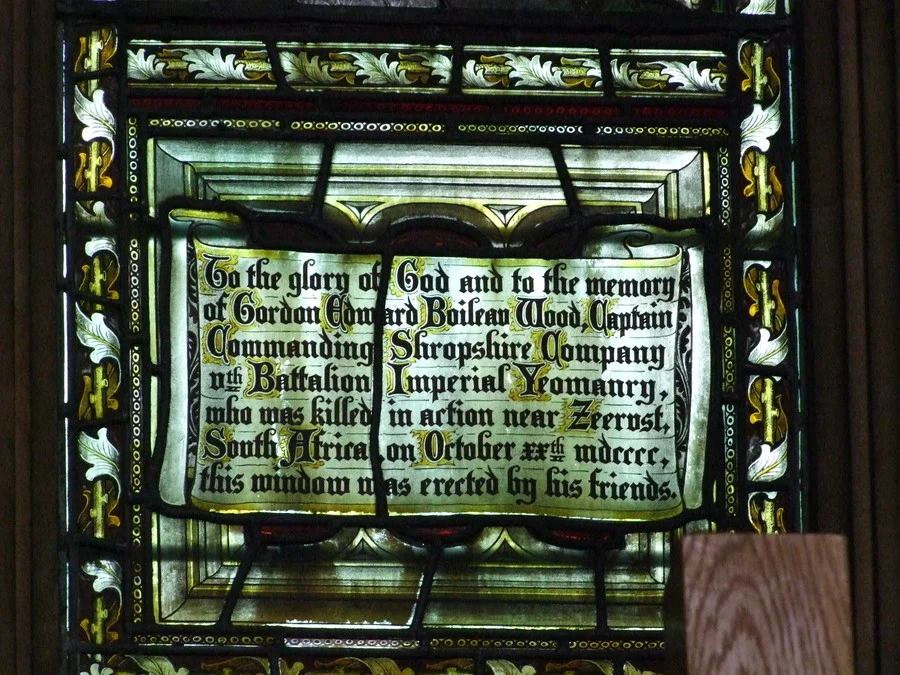 To the glory of God and to the memory
of Gordon Edward Boilean Wood, Captain
Commanding Shropshire Company
vth Battalion Imperial Yeomanry,
who was killed in action near Zeerust,
South Africa on October xxth mdcccc,
this window was erected by his friends.